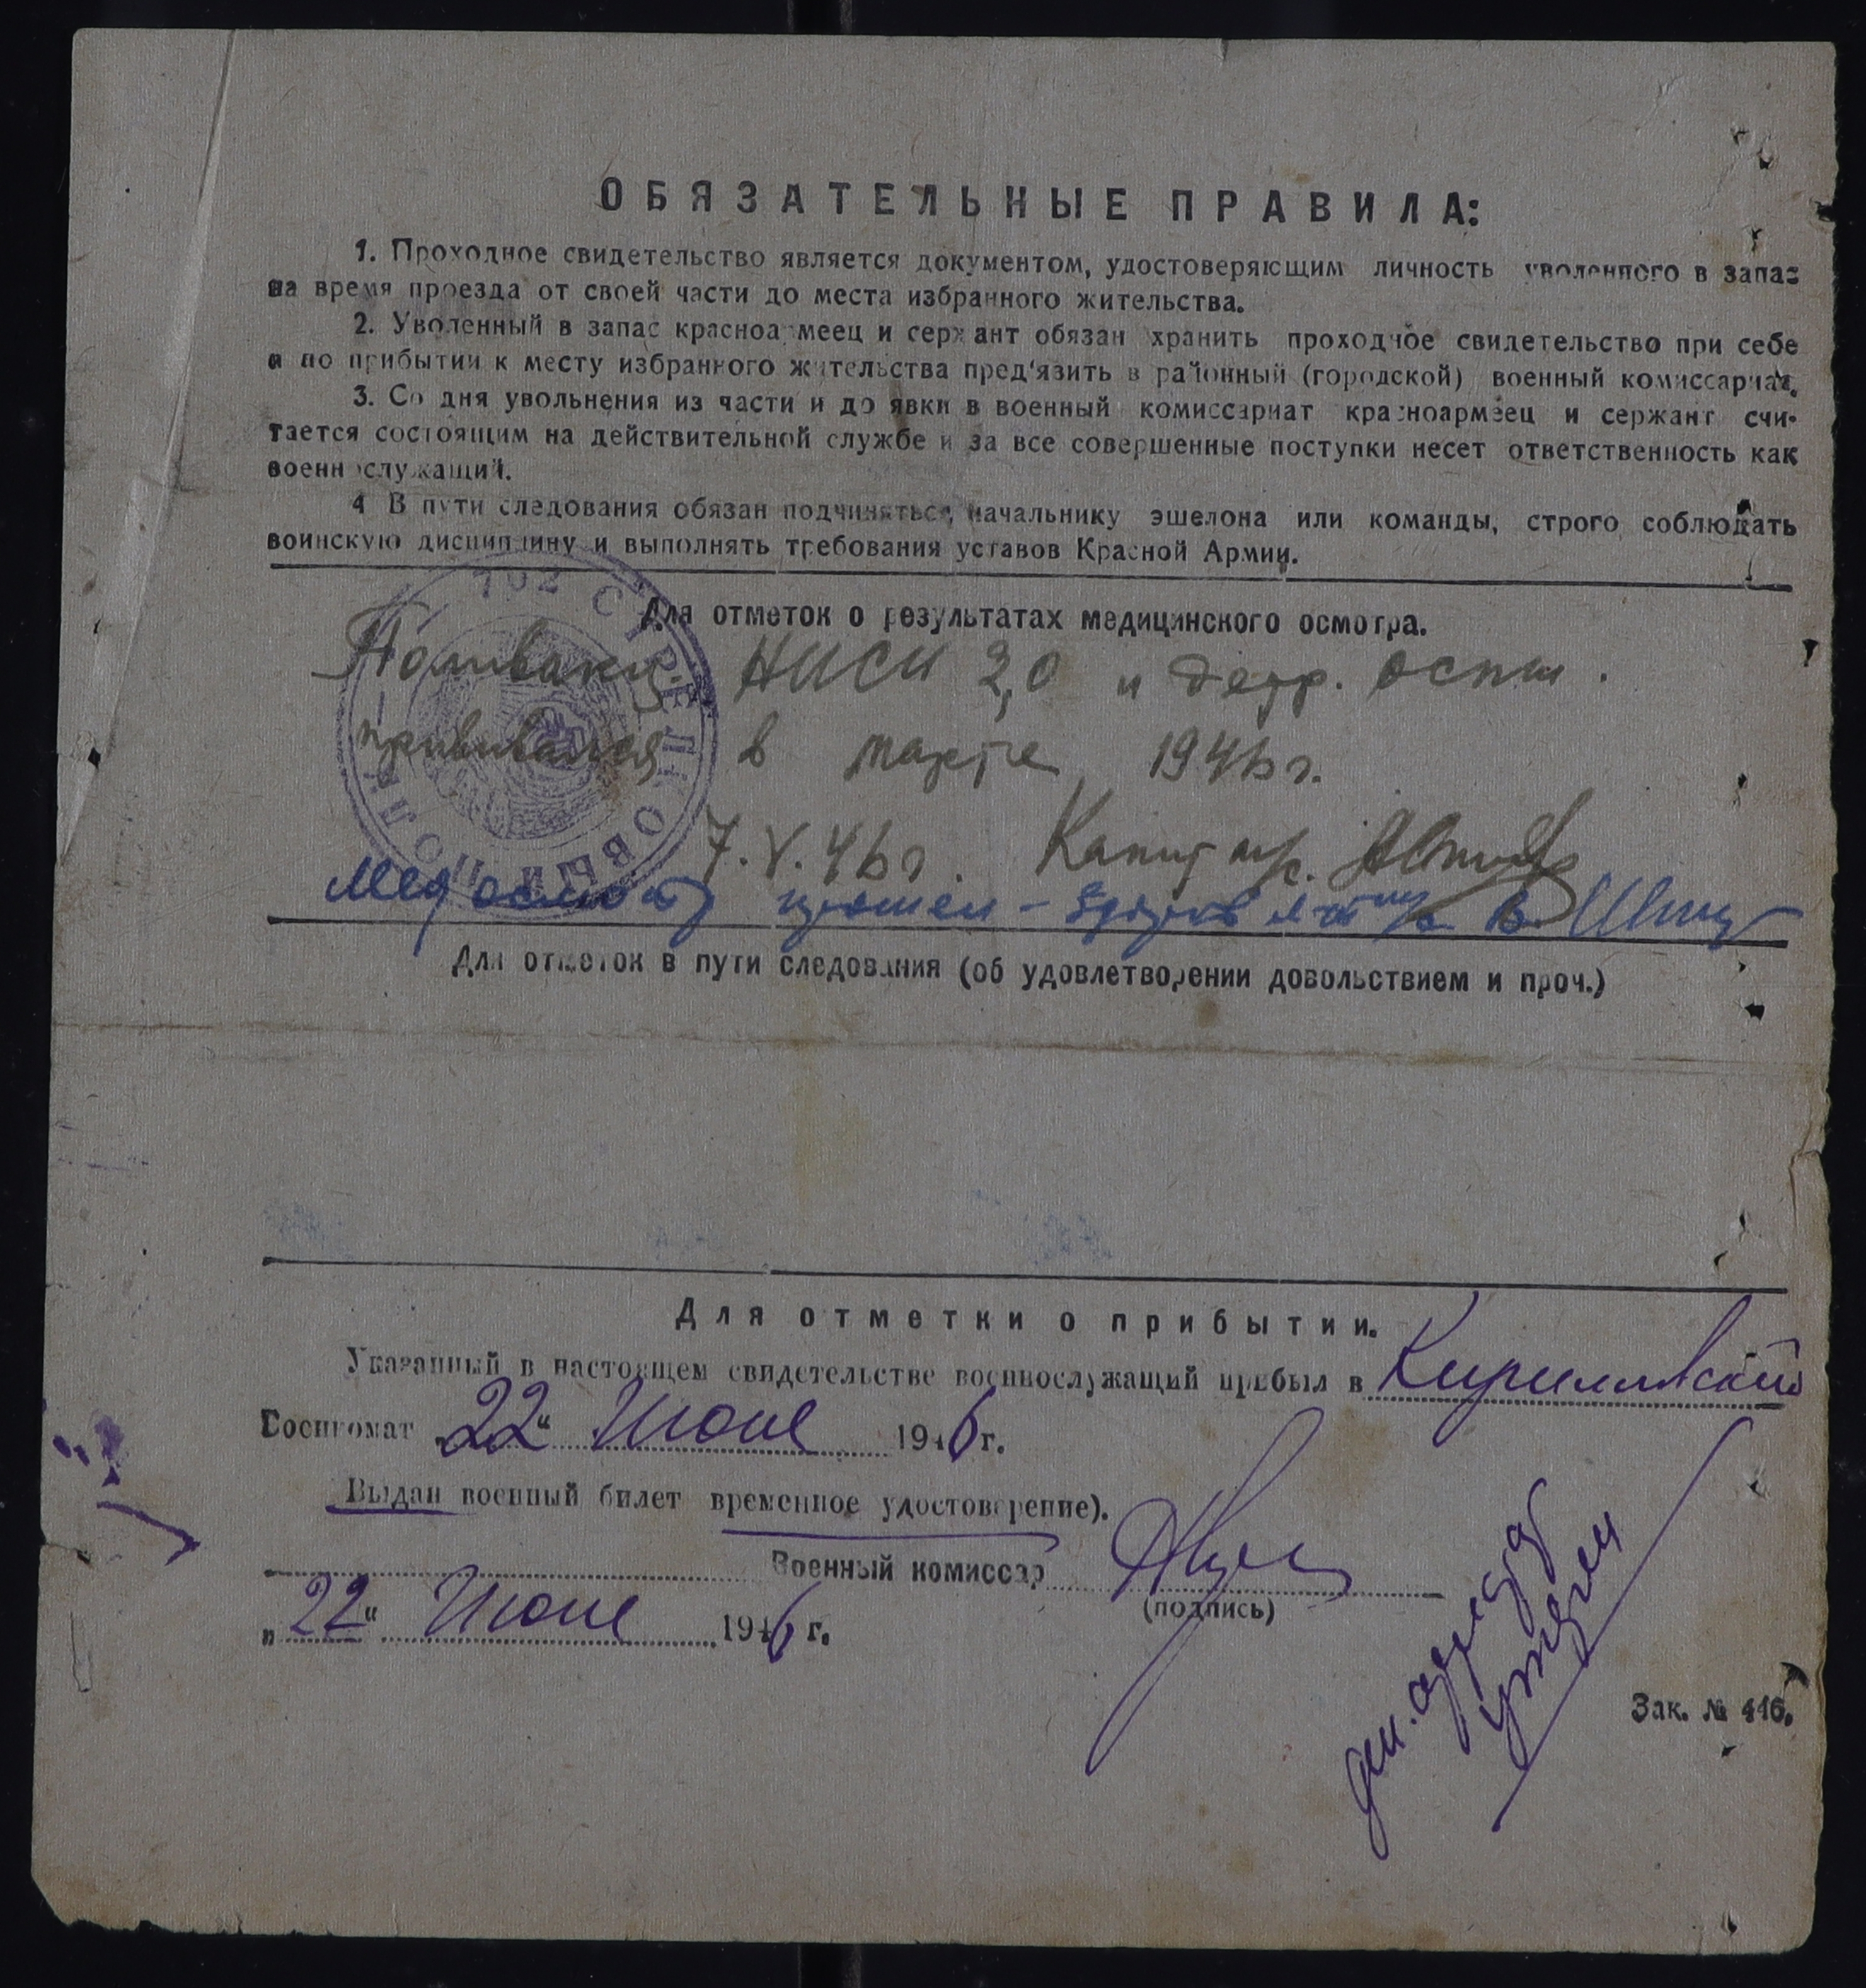 ОБЯЗАТЕЛЬНЫЕ ПРАВИЛА:
1. Проходное свидетельство является документом, удостоверяющим личность уволенного в запас
на время проезда от своей части до места избранного жительства.
2. Уволенный в запас красноармеец и сержант обязан хранить проходное свидетельство при себе
и по прибытии к месту избранного жительства пред'язить в районный (городской) военный комиссариат.
3. Со дня увольнения из части и до явки в военный комиссариат красноармеец и сержант счи-
тается состоящим на действительной службе и за все совершенные поступки несет ответственность как
военнослужащий.
4 В пути следования обязан подчиняться начальнику эшелона или команды, строго соблюдать
воинскую дисциплину и выполнять требования уставов Красной Армии.
102 СТРЕЛКОВЫЙ ПОЛК
Для отметок о результатах медицинского осмотра.
Поливакц. НИСИ 2,0 и детр. оспы.
прививался в марте 1946 г.
7.V.46 г. Капит м/с.
Медосмотр прошел - здоров
Для отметок в пути следования (об удовлетворении довольствием и проч.)
Для отметки о прибытии.
Указанный в настоящем свидетельстве военнослужащий прибыл в Кирилловский
Военкомат „22“ Июня 1946 г.
Выдан военный билет временное удостоверение).
Военный комиссар
(подпись)
„22“ Июня 1946 г.
Зак. № 416.